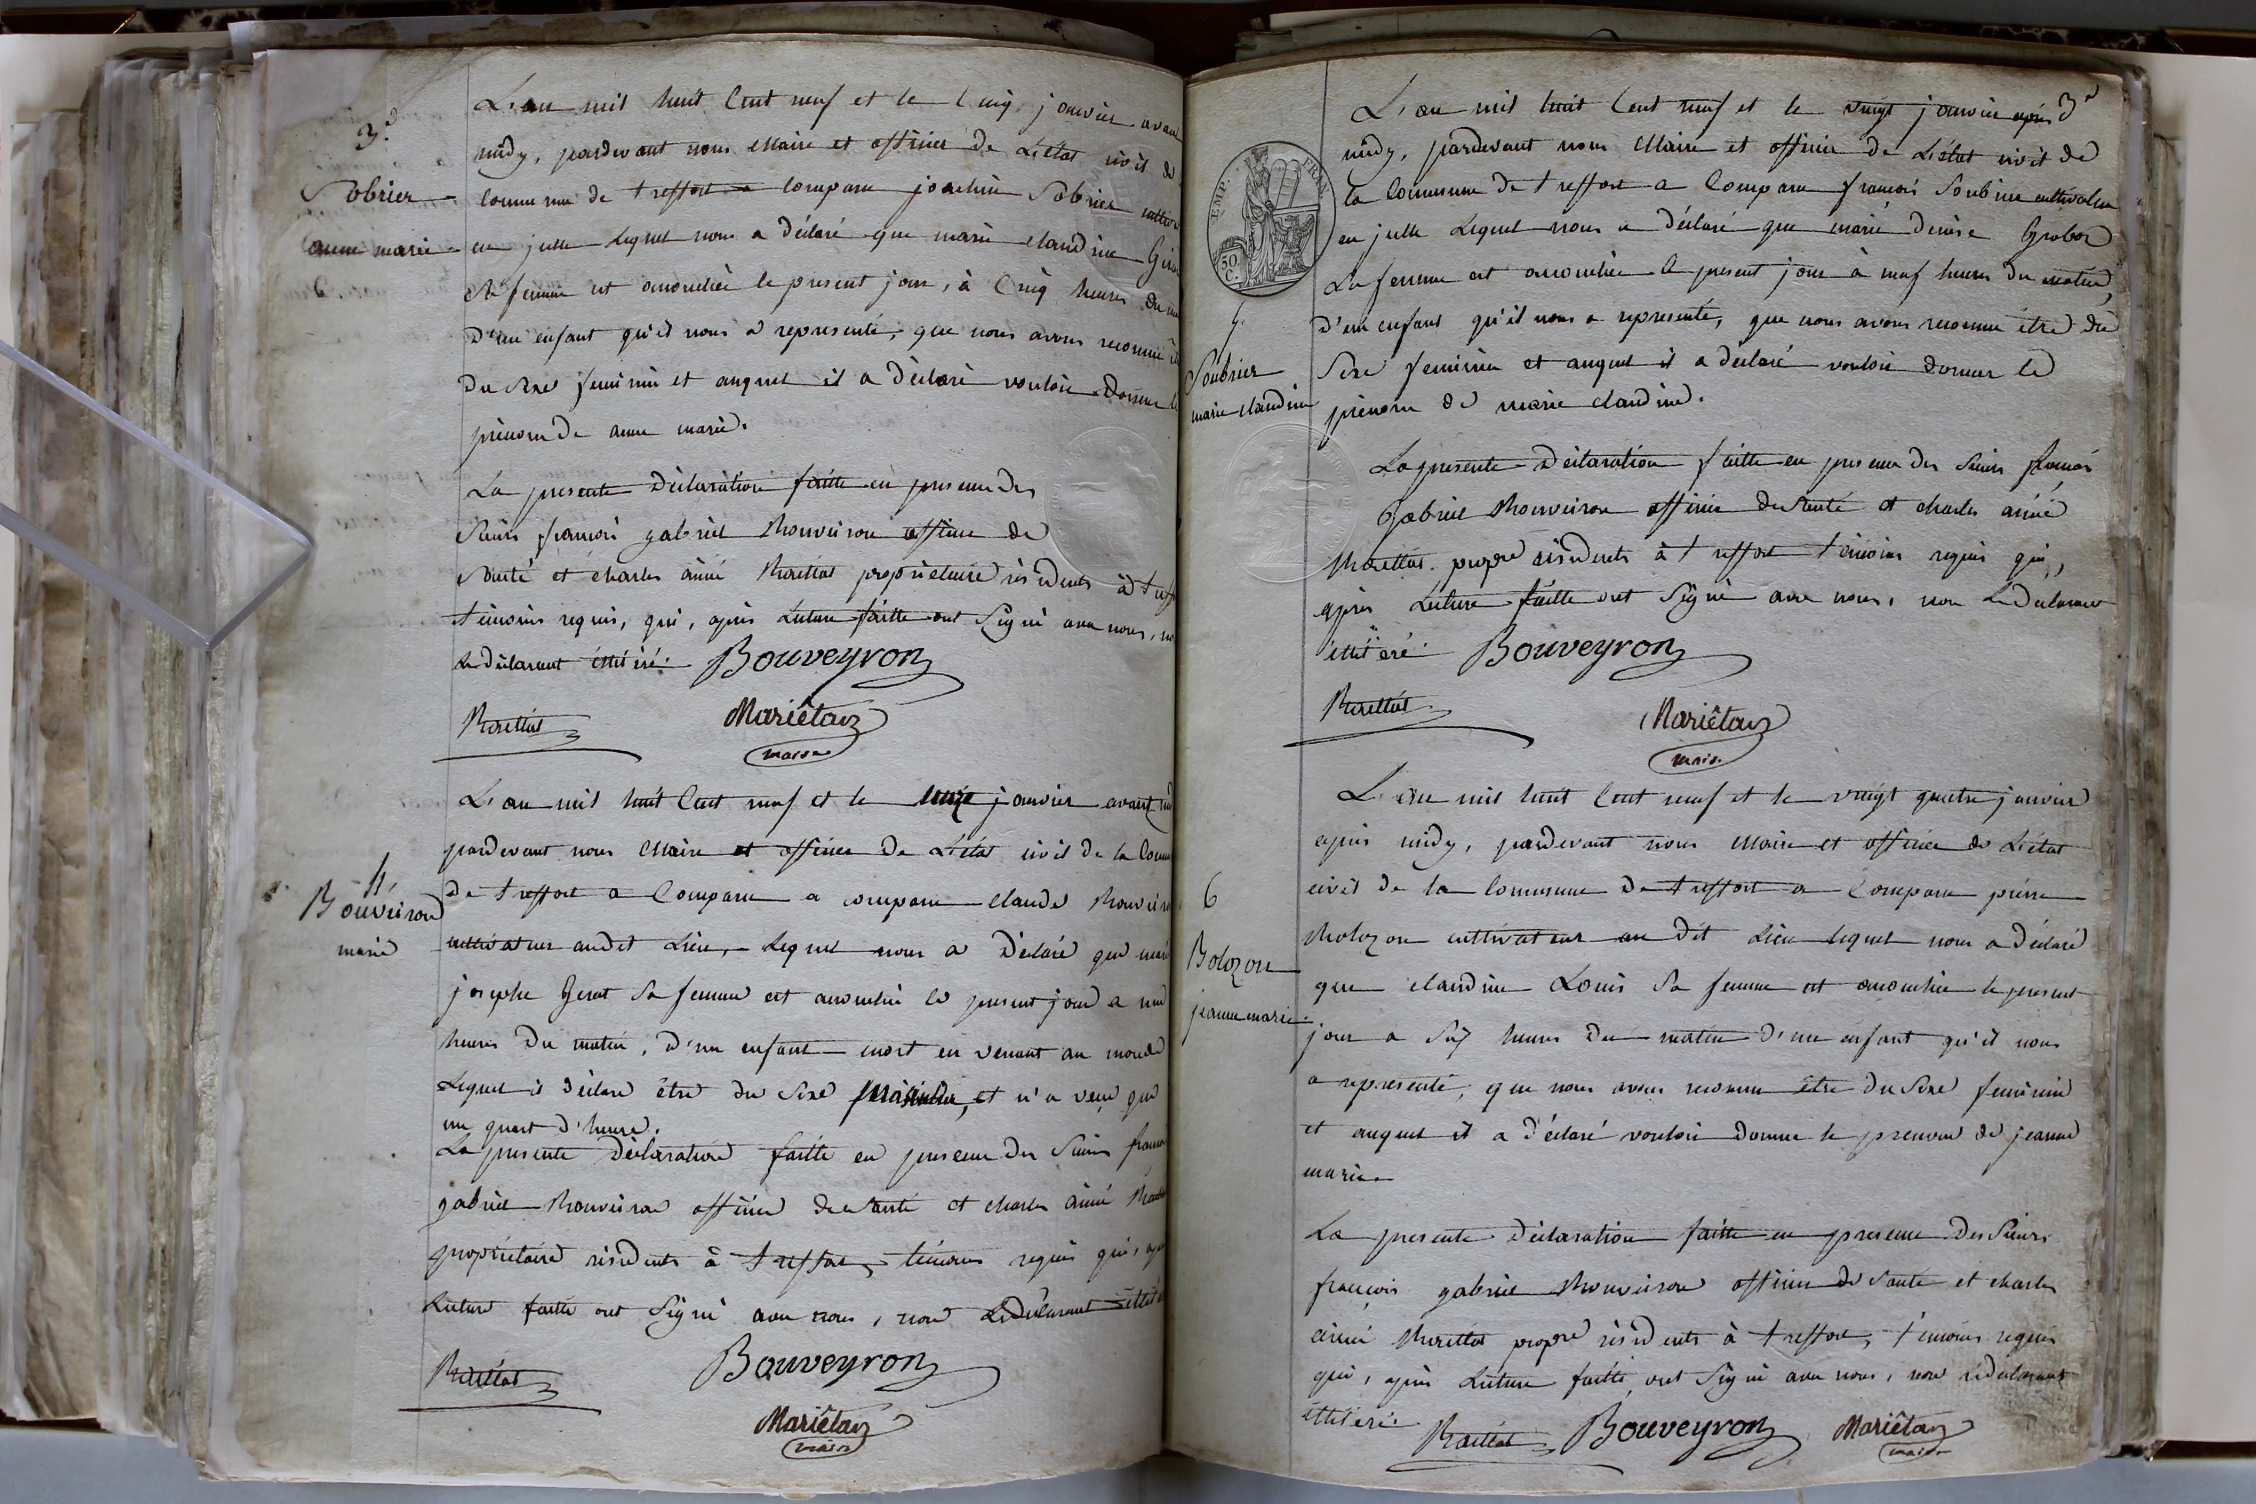 3.e
Sobrier
anne marie
L'an mil huit Cent neuf et le Cinq janvier avant
midy, pardevant nous Maire et officier de L'état civil de
Commune de treffort a Comparu joachin Sobrier
en jully Lequel nous a déclaré que marie claudine
Sa femme est accouchée le present jour, à Cinq heures du
D'un enfant qu'il nous a representé, que nous avons reconnu
Du Sexe feminin et auquel il a déclaré vouloir Donner
prénom de anne marie.
La presente Déclaration faitte en presence des
Sieurs françois gabriel Bouveiron officier de
Santé et charles aimé Marillat propriétaire résidents à
témoins requis, qui, après Lecture faitte ont Signé avec nous,
Le Déclarant illitéré. Bouveyron
Mariêtan
maire
4
Bouveiron
marie
L'an mil huit Cent neuf et le janvier avant
pardevant nous Maire et officier De L'état civil de la
De treffort a Comparu a comparu claude
cultivateur audit Lieu, Lequel nous a Déclaré que
josephe Sa femme est accouchée le present jour a
heures Du matin, D'un enfant mort en venant au monde
Lequel il Déclare être du Sexe et n'a vecu que
un quart d'heure.
La presente Déclaration faitte en presence des Sieurs
gabriel Bouveiron officier de Santé et charles aimé
propriétaire résidents à treffort, témoins requis qui,
Lecture faitte ont Signé avec nous, non Le Déclarant
Bouveyron
Mariêtan
maire
EMP. FRAN.
50 C.
5
Soubrier
marie claudine
L'an mil huit Cent neuf et le vingt janvier après
midy, pardevant nous Maire et officier de L'état civil de
la Commune De treffort a Comparu françois Soubrier cultivateur
en jully Lequel nous a Déclaré que marie denise
Sa femme est accouchée le present jour à neuf heures du matin,
d'un enfant qu'il nous a representé, que nous avons reconnu être du
Sexe feminin et auquel il a déclaré vouloir donner le
prénom de marie claudine.
La presente Déclaration faitte en presence des Sieurs françois
Gabriel Bouveiron officier de Santé et charles aimé
propre résidents à treffort témoins requis qui,
après Lecture faitte ont Signé avec nous, non Le Déclarant
illitéré. Bouveyron
Mariêtan
maire
6
Bolozon
jeanne marie
L'an mil huit Cent neuf et le vingt quatre janvier
après midy, pardevant nous Maire et officier de L'état
civil de la Commune De treffort a Comparu pierre
Bolozon cultivateur au dit Lieu Lequel nous a Déclaré
que claudine Louis Sa femme est accouchée le present
jour a Six heures Du matin D'un enfant qu'il nous
a representé, que nous avons reconnu être du Sexe feminin
et auquel il a déclaré vouloir donner le prenom de jeanne
marie.
La presente Déclaration faitte en presence Des Sieurs
françois gabriel Bouveiron officier de Santé et charles
aimé propre résidents à treffort, témoins requis
qui, après Lecture faitte, ont Signé avec nous, non le déclarant
illitéré. Bouveyron Mariêtan
maire